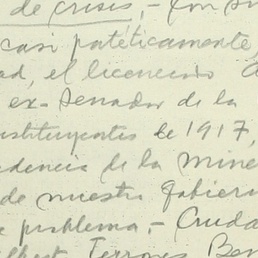 de crisis,- Con su
casi patéticamente,
ad, el licenciado A
ex-Senador de la
nstituyentes de 1917,
dencia de la mine
de nuestro gobiern
problema.- Cruda
lbert Terrones Ben